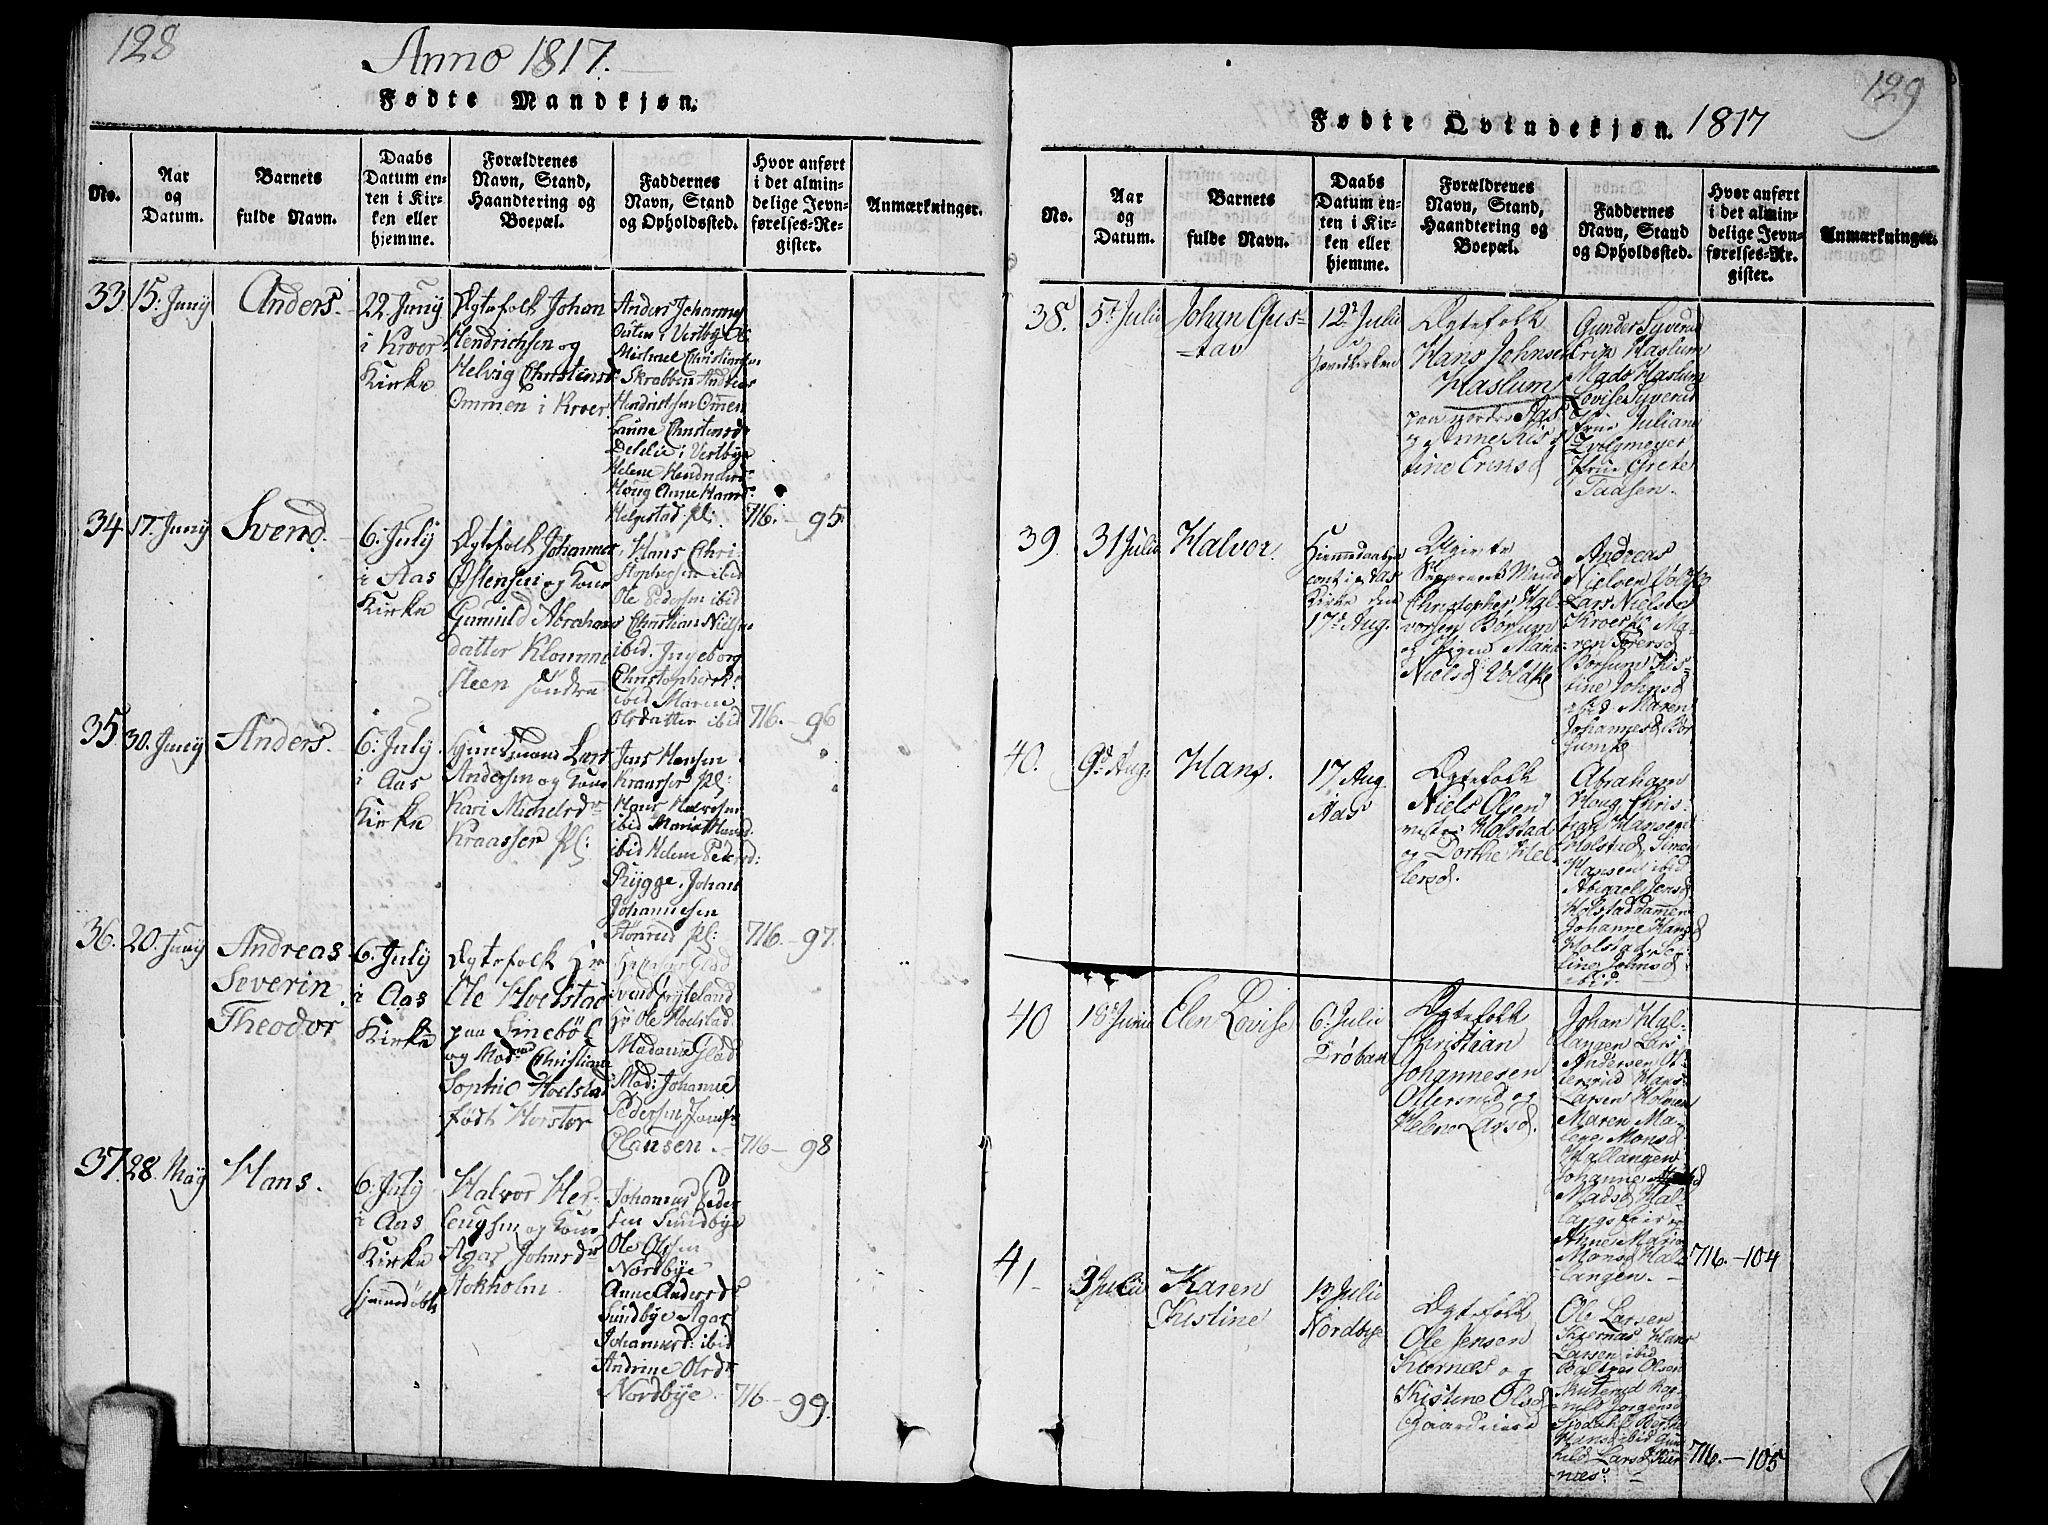 128
Anno 1817.
Fødte Mandkjøn.
No.
Aar
og
Datum.
Barnets
fulde Navn.
Daabs
Datum en-
ten i Kir-
ken eller
hjemme.
Forældrenes
Navn, Stand,
Haandtering og
Boepæl.
Faddernes
Navn, Stand
og Opholdssted.
Hvor anført
i det almin-
delige Jevn-
førelses-Re-
gister.
Anmærkninger.
33.
15. Juny
Anders.
22 Juny
i Kroer
Kirke
Ægtefolk Johan
Hendrichsen og
Helvig Christensd
Ommen i Kroer.
Anders Johannes
Michael Christensen
Skrabben Andreas
Hendrichsen Ommen
Christensd
i Vestbye
Helene Hendrichsd
Houg Anne Hansd
Helgestad pl:
716. - 95.
34
17. Juny
Svend.
6. July
i Aas
Kirke
Ægtefolk Johannes
Østensen og Kone
Gunnild Abrahams
datter Klomme
steen søndre
Hans Chri-
stophersen ibid
Ole Pedersen ibid
Christian Nielsen
ibid. Ingeborg
Christophersd.
ibid Maren
Olsdatter ibid
716. - 96
35.
30. Juny
Anders.
6. July
i Aas
Kirke
Lars
Andersen og Kone
Kari Michelsdr
Kraasser Pl:
Jens Hansen
Kraasser pl:
Hans Halvorsen
ibid Marie Hansd.
ibid Helene Pedersd:
Rygge. Johan
Johannesen
pl:
716 - 97.
36.
20. Juny
Andreas
Severin
Theodor
6. July
i Aas
Kirke
Ægtefolk Hr
Ole Hoelstad
paa Sinebøl
og Madme Christiane
Sophie Hoelstad
født Horster
Glad
Svend Gryteland
Hr Ole Hoelstad.
Madame Glad
Mad: Johanne
Pedersen, Jomfr
Clausen.
716 - 98
37.
28. May
Hans.
6. July
i Aas
Kirke
hjemmedøbt
Halvor Her-
lougsen og Kone
Agar Johnsdr
Stokholm
Johannes Peder
sen Sundbye
Ole Olsen
Nordbye
Anne Andersdr
Sundbye Agar
Johannesd: ibid
Andrine Olsdr
Nordbye.
716 - 99.
129
Fødte Qvindekjøn. 1817
No.
Aar
og
Datum.
Barnets
fulde Navn.
Daabs
Datum en-
ten i Kir-
ken eller
hjemme.
Forældrenes
Navn, Stand,
Haandtering og
Boepæl.
Faddernes
Navn, Stand
og Opholdssted.
Hvor anført
i det almin-
delige Jevn-
førelses-Re-
gister.
Anmærkninger.
38.
5t Julii
Johan Gus-
tav
12t Julii
Hovedkirken
Ægtefolk
Hans Johnsen
Haslum
paa nordre Aas
og Anne Kis
tine Ericsd
Gunder Syverud
Eric Haslum
Mads Haslum
Lovise Syverud
Frue Juliane
Zvilgmeyer
Frue Grete
Taasen.
39.
31 Julii
Halvor.
Hiemmedaaben
conf: i Aas
Kirke den
17d Aug.
Ugivte
Separeret Mand
Christopher Hal
vorsen Borsum
og Pigen Marie
Nielsd Voldhe
Andreas
Nielsen
Lars Nielsen
Kroer Ma-
ren Torersd
Borsum Kis-
tine Johnsd
ibid Maren
Johannesd Bor
sum
40.
9d Aug.
Hans.
17 Aug
Aas
Ægtefolk
Niels Olsen
vestre Holstad
og Dorthe Hel
lersd.
Abraham
Houg Chris-
tian Hansen
Holstad, Simon
Hansen ibid
Abigael Jensd
Holstaddammen
Johanne Hansd
Holstad Ser-
tine Johnsd
ibid.
40
18d Junii
Elen Lovise
6. Julii
Drøbak
Ægtefolk
Christian
Johannesen
Ottersrud og
Helene Larsd.
Johan Hal-
langen Lars
Andersen Ot-
tersrud Hans
Larsen Holmen
Maren Ma-
Monsd
Hallangen
Johanne
Madsd Hal-
Anne Marie
Monsd Hal-
langen. -
716. - 104
41 -
3 Julii
Karen
Kistine
13 Julii
Nordbye
Ægtefolk
Ole Jensen
Kiernæs og
Kistine Olsd
Gaardeiere
Ole Larsen
Kiærnæs Hans
Larsen ibid
Baltzer Olsen
Skuterud Rag-
nild Jørgensd
Siødahl Berthe
Hansd ibid Gun
hild Larsd Kier-
næs: -
716. - 105